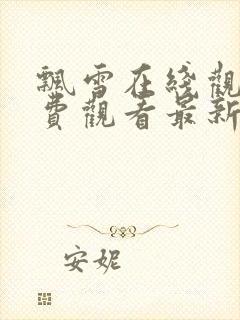 飄雪在綫觀
費觀看最新
安妮